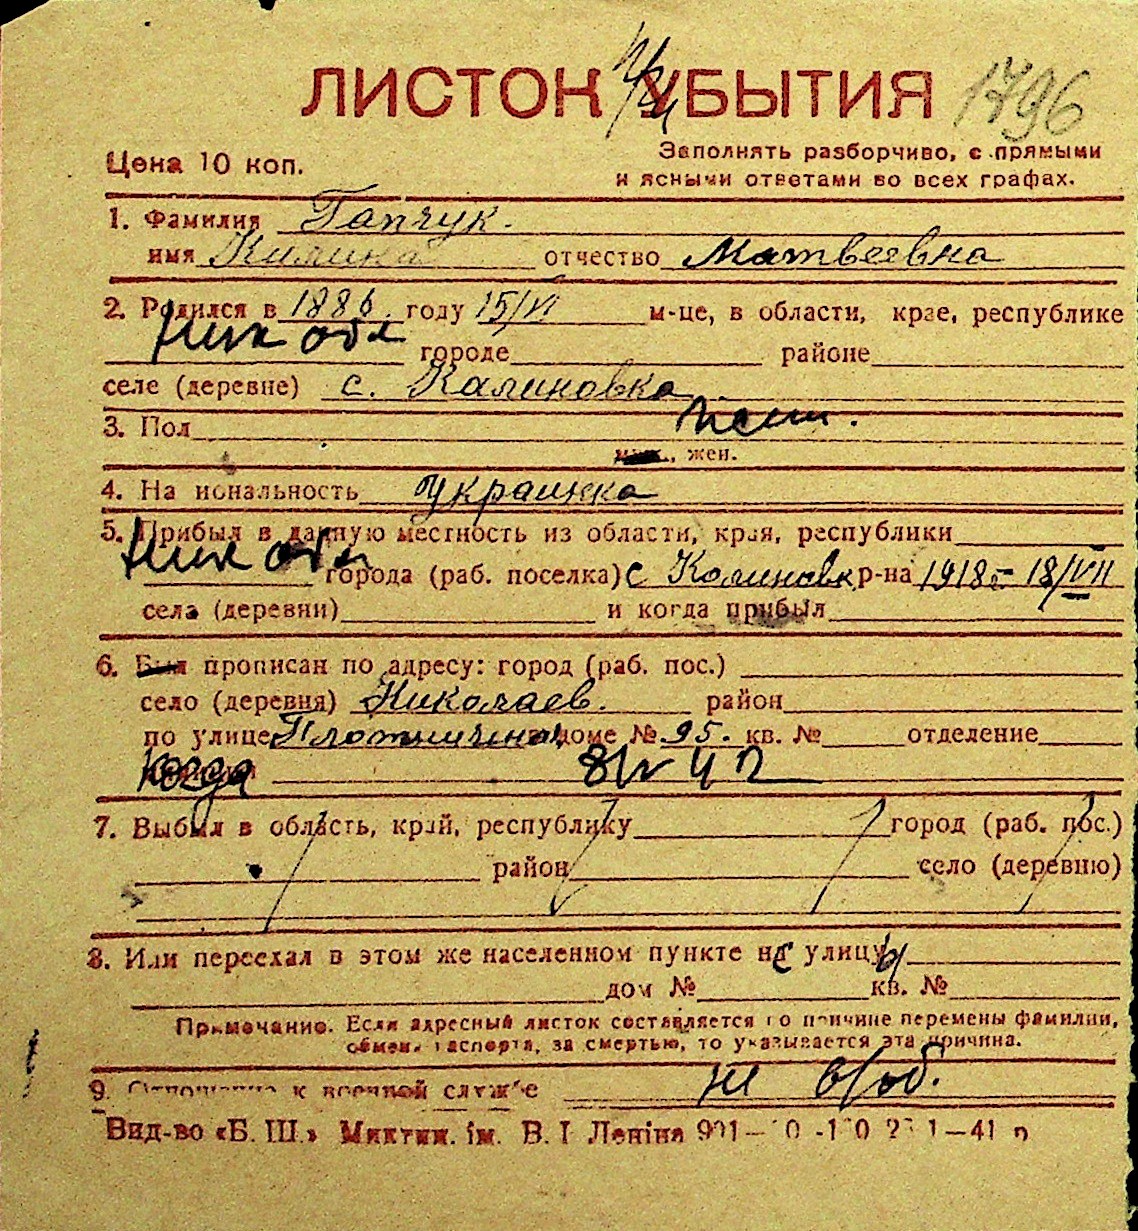 ЛИСТОК УБЫТИЯ 1796
Цена 10 коп.
Заполнять разборчиво, с прямыми
и ясными ответами во всех графах.
1. Фамилия Гапчук.
имя Килина отчество Матвеевна
2. Родился в 1886. году 15/VI м-це, в области, крае, республике
Ник обл городе районе
селе (деревне) с. Калиновка
3. Пол жен.
муж., жен.
4. На иональность Украинка
5. Прибыл в данную местность из области, края, республики
Ник обл города (раб. поселка) с Калиновк р-на 1918 г 18/VII
села (деревни) и когда прибыл
6. Был прописан по адресу: город (раб. пос.)
село (деревня) Николаев. район
по улице доме № 95. кв. № отделение
Когда 8/IV 42
7. Выбыл в область, край, республику город (раб. пос.)
район село (деревню)
8. Или переехал в этом же населенном пункте на улицу
дом № кв. №
Примечание. Если адресный листок составляется по причине перемены фамилии,
обмена паспорта, за смертью, то указывается эта причина.
9. Отношение к военной службе не в/об.
Вид-во «Б. Ш.» Миктип. ім. В. І Леніна